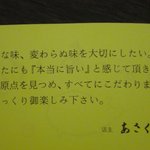 な味、変わらぬ味を大切にしたい。
たにも『本当に旨い』と感じて頂き
原点を見つめ、すべてにこだわりま
っくり御楽しみ下さい。
店主 あさく